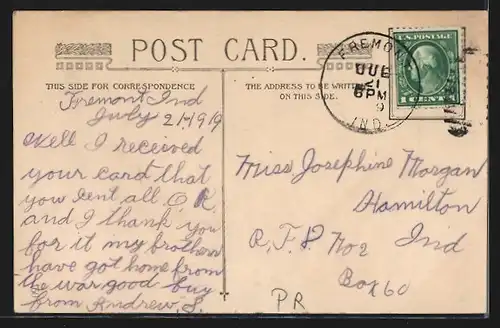 POST CARD.
THIS SIDE FOR CORRESPONDENCE
THE ADDRESS TO BE WRITTEN
ON THIS SIDE.
FREMONT
JUL
21
6 PM
9
IND.
U.S. POSTAGE
1 CENT 1
Fremont Ind
July 21-1919
Well I received
your card that
you sent all O K
and I thank you
for it my brothers
have got home from
the war good buy
from Andrew, S.
Miss Josephine Morgan
Hamilton
R, F, D No 2 Ind
Box 60
PR